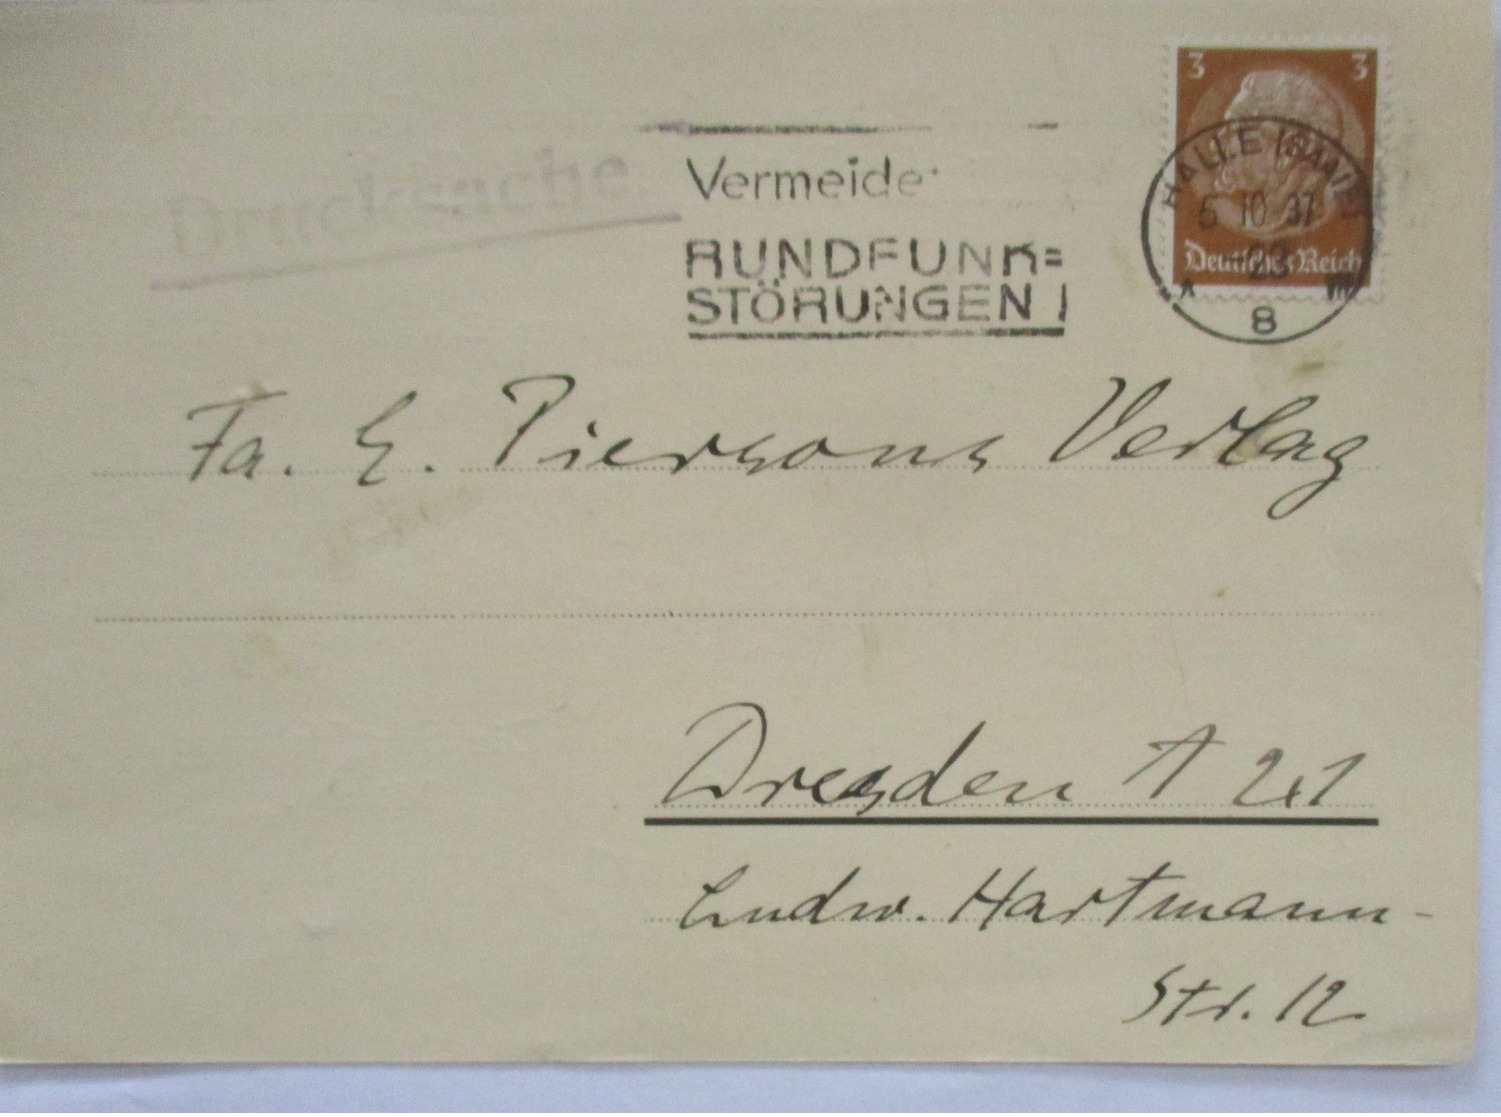 3 3
Deutsches Reich
HALLE (SAALE)
5 10 37
23
A VIII
8
Drucksache
Vermeide
RUNDFUNK=
STÖRUNGEN!
Fa. E. Piersons Verlag
Dresden A 21
Ludw. Hartmann-
Str. 12